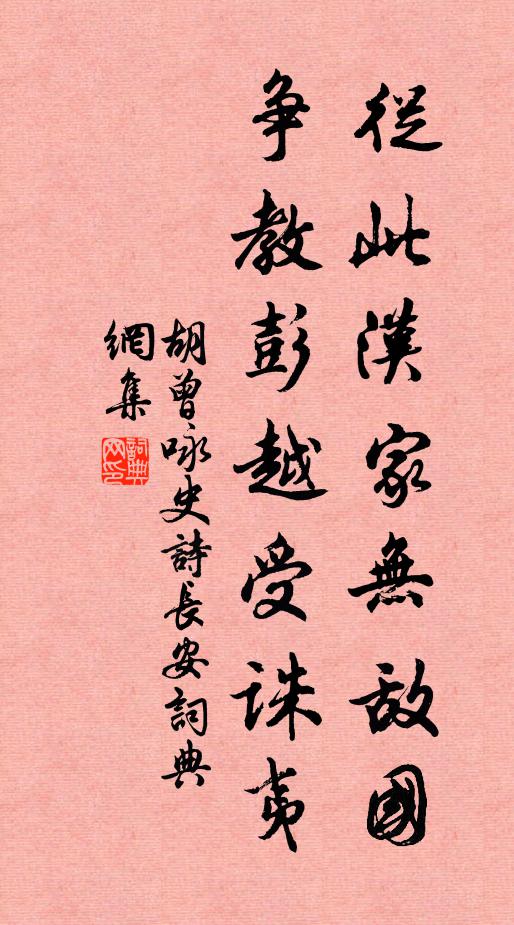 從此漢家無敵國
争教彭越受誅夷
胡曾咏史詩長安詞典
網集
詞典
网印